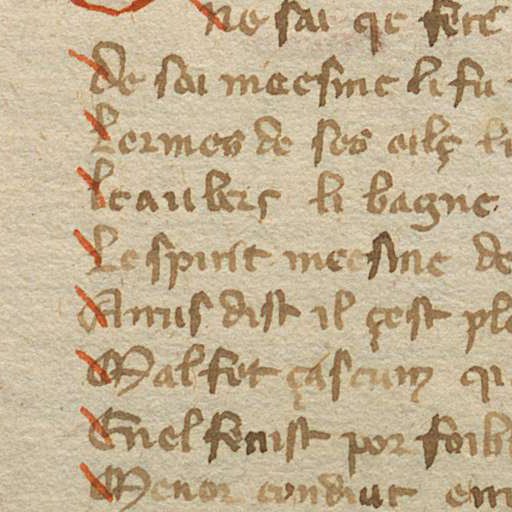 ne sai qe fere
de soi meesme li fu
Lermes de ses oilç li
leaubers li bagne
Le spirit meesme de
Amis dist il çest pl
Malfet çascun q
En el fenist por foib
Menor condiut en